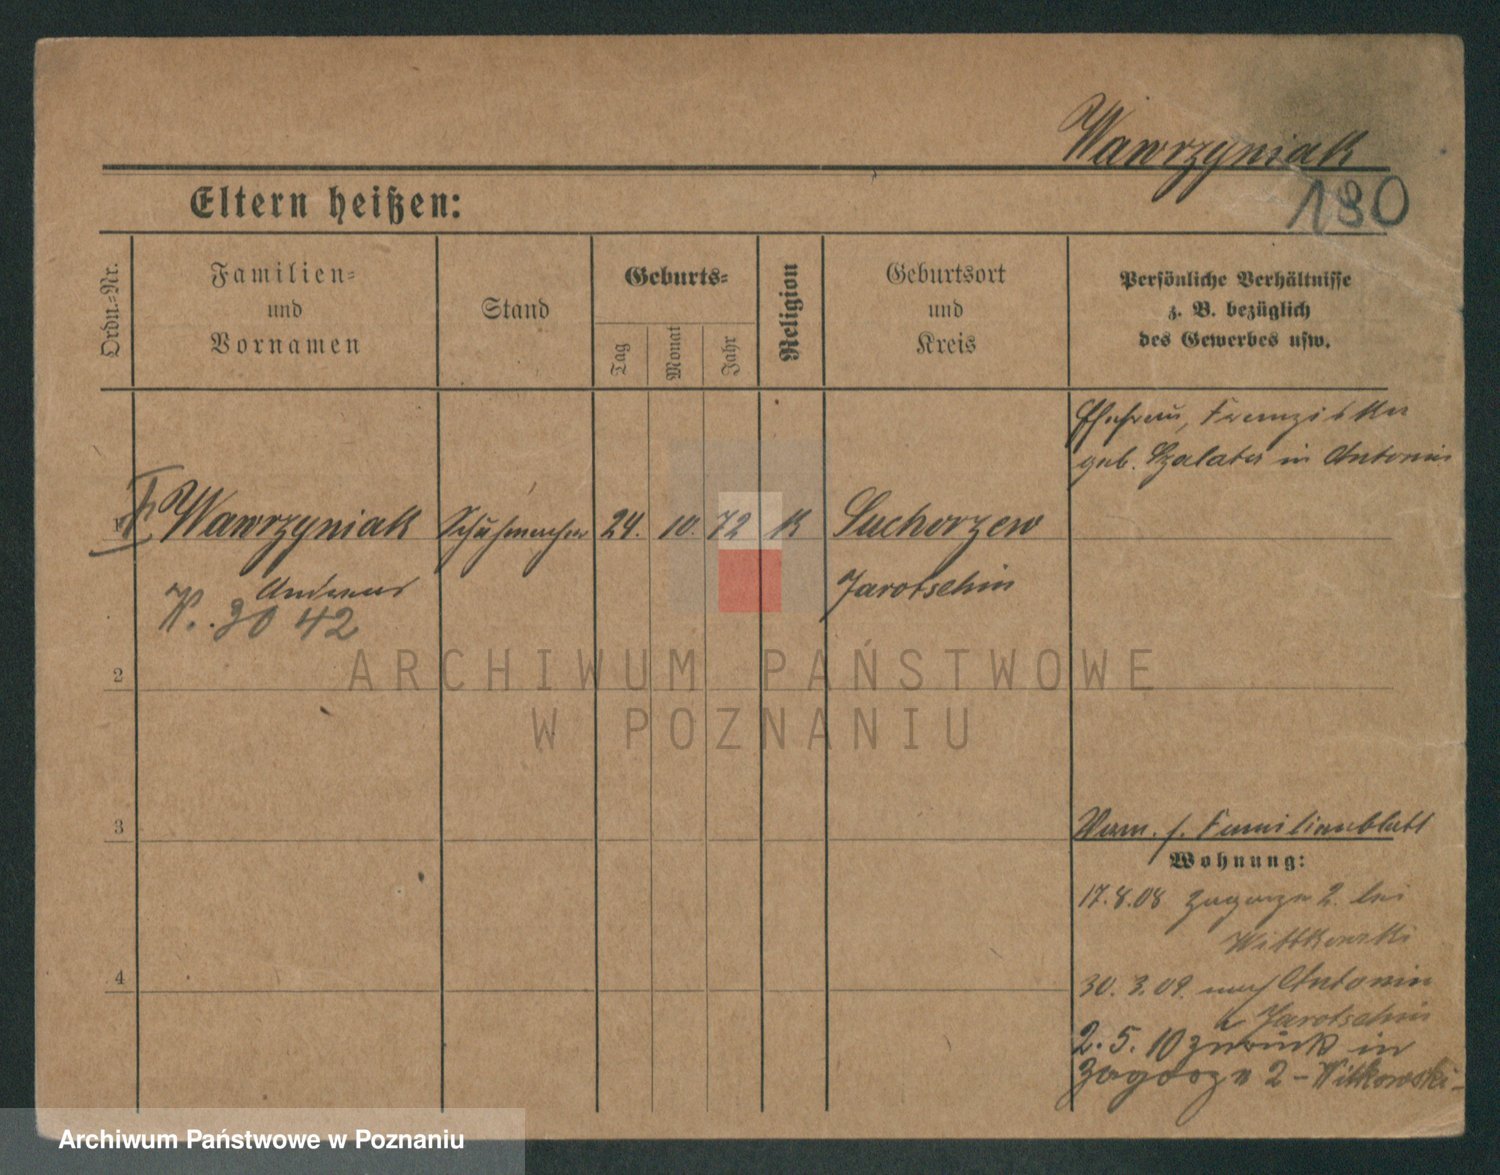 Wawrzyniak
130
Eltern heißen:
Ordn.-Nr.
Familien-
und
Vornamen
Stand
Geburts-
Tag
Monat
Jahr
Religion
Geburtsort
und
Kreis
Persönliche Verhältnisse
z. B. bezüglich
des Gewerbes usw.
Ehefrau, Franziska
geb. Szalata in Antonin
1 Wawrzyniak Schuhmacher 24. 10. 72 K Suchorzew
Andreas Jarotschin
30 42
2
ARCHIWUM PAŃSTWOWE
W POZNANIU
3
Verm. s. Familienblatt
Wohnung:
17.8.08 Zagorze 2. bei
Wittkowski
4
30. 3. 09. nach Antonin
Jarotschin
2. 5. 10 zurück in
Zagorze 2 - Witkowski-
Archiwum Państwowe w Poznaniu